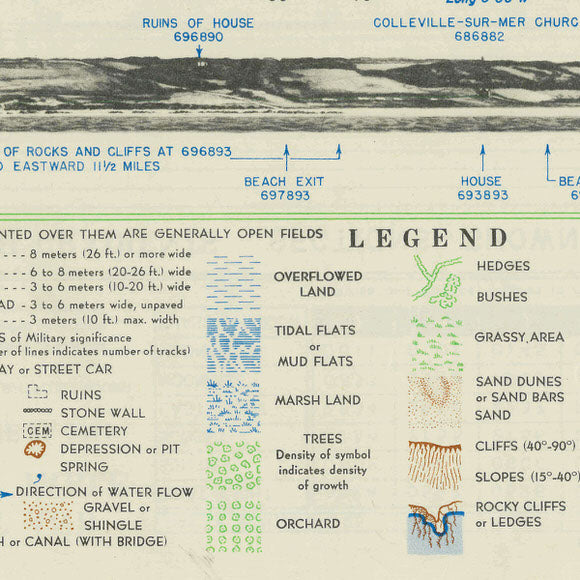 RUINS OF HOUSE
696890
COLLEVILLE-SUR-MER CHURC
686882
OF ROCKS AND CLIFFS AT 696893
EASTWARD 11½ MILES
BEACH EXIT
697893
HOUSE
693893
BEA
NTED OVER THEM ARE GENERALLY OPEN FIELDS
LEGEND
8 meters (26 ft.) or more wide
6 to 8 meters (20-26 ft.) wide
3 to 6 meters (10-20 ft.) wide
AD - 3 to 6 meters wide, unpaved
3 meters (10 ft.) max. width
S of Military significance
er of lines indicates number of tracks)
AY or STREET CAR
RUINS
STONE WALL
CEM
CEMETERY
DEPRESSION or PIT
SPRING
DIRECTION of WATER FLOW
GRAVEL or
SHINGLE
H or CANAL (WITH BRIDGE)
OVERFLOWED
LAND
TIDAL FLATS
or
MUD FLATS
MARSH LAND
TREES
Density of symbol
indicates density
of growth
ORCHARD
HEDGES
BUSHES
GRASSY AREA
SAND DUNES
or SAND BARS
SAND
CLIFFS (40°-90°)
SLOPES (15°-40°)
ROCKY CLIFFS
or LEDGES